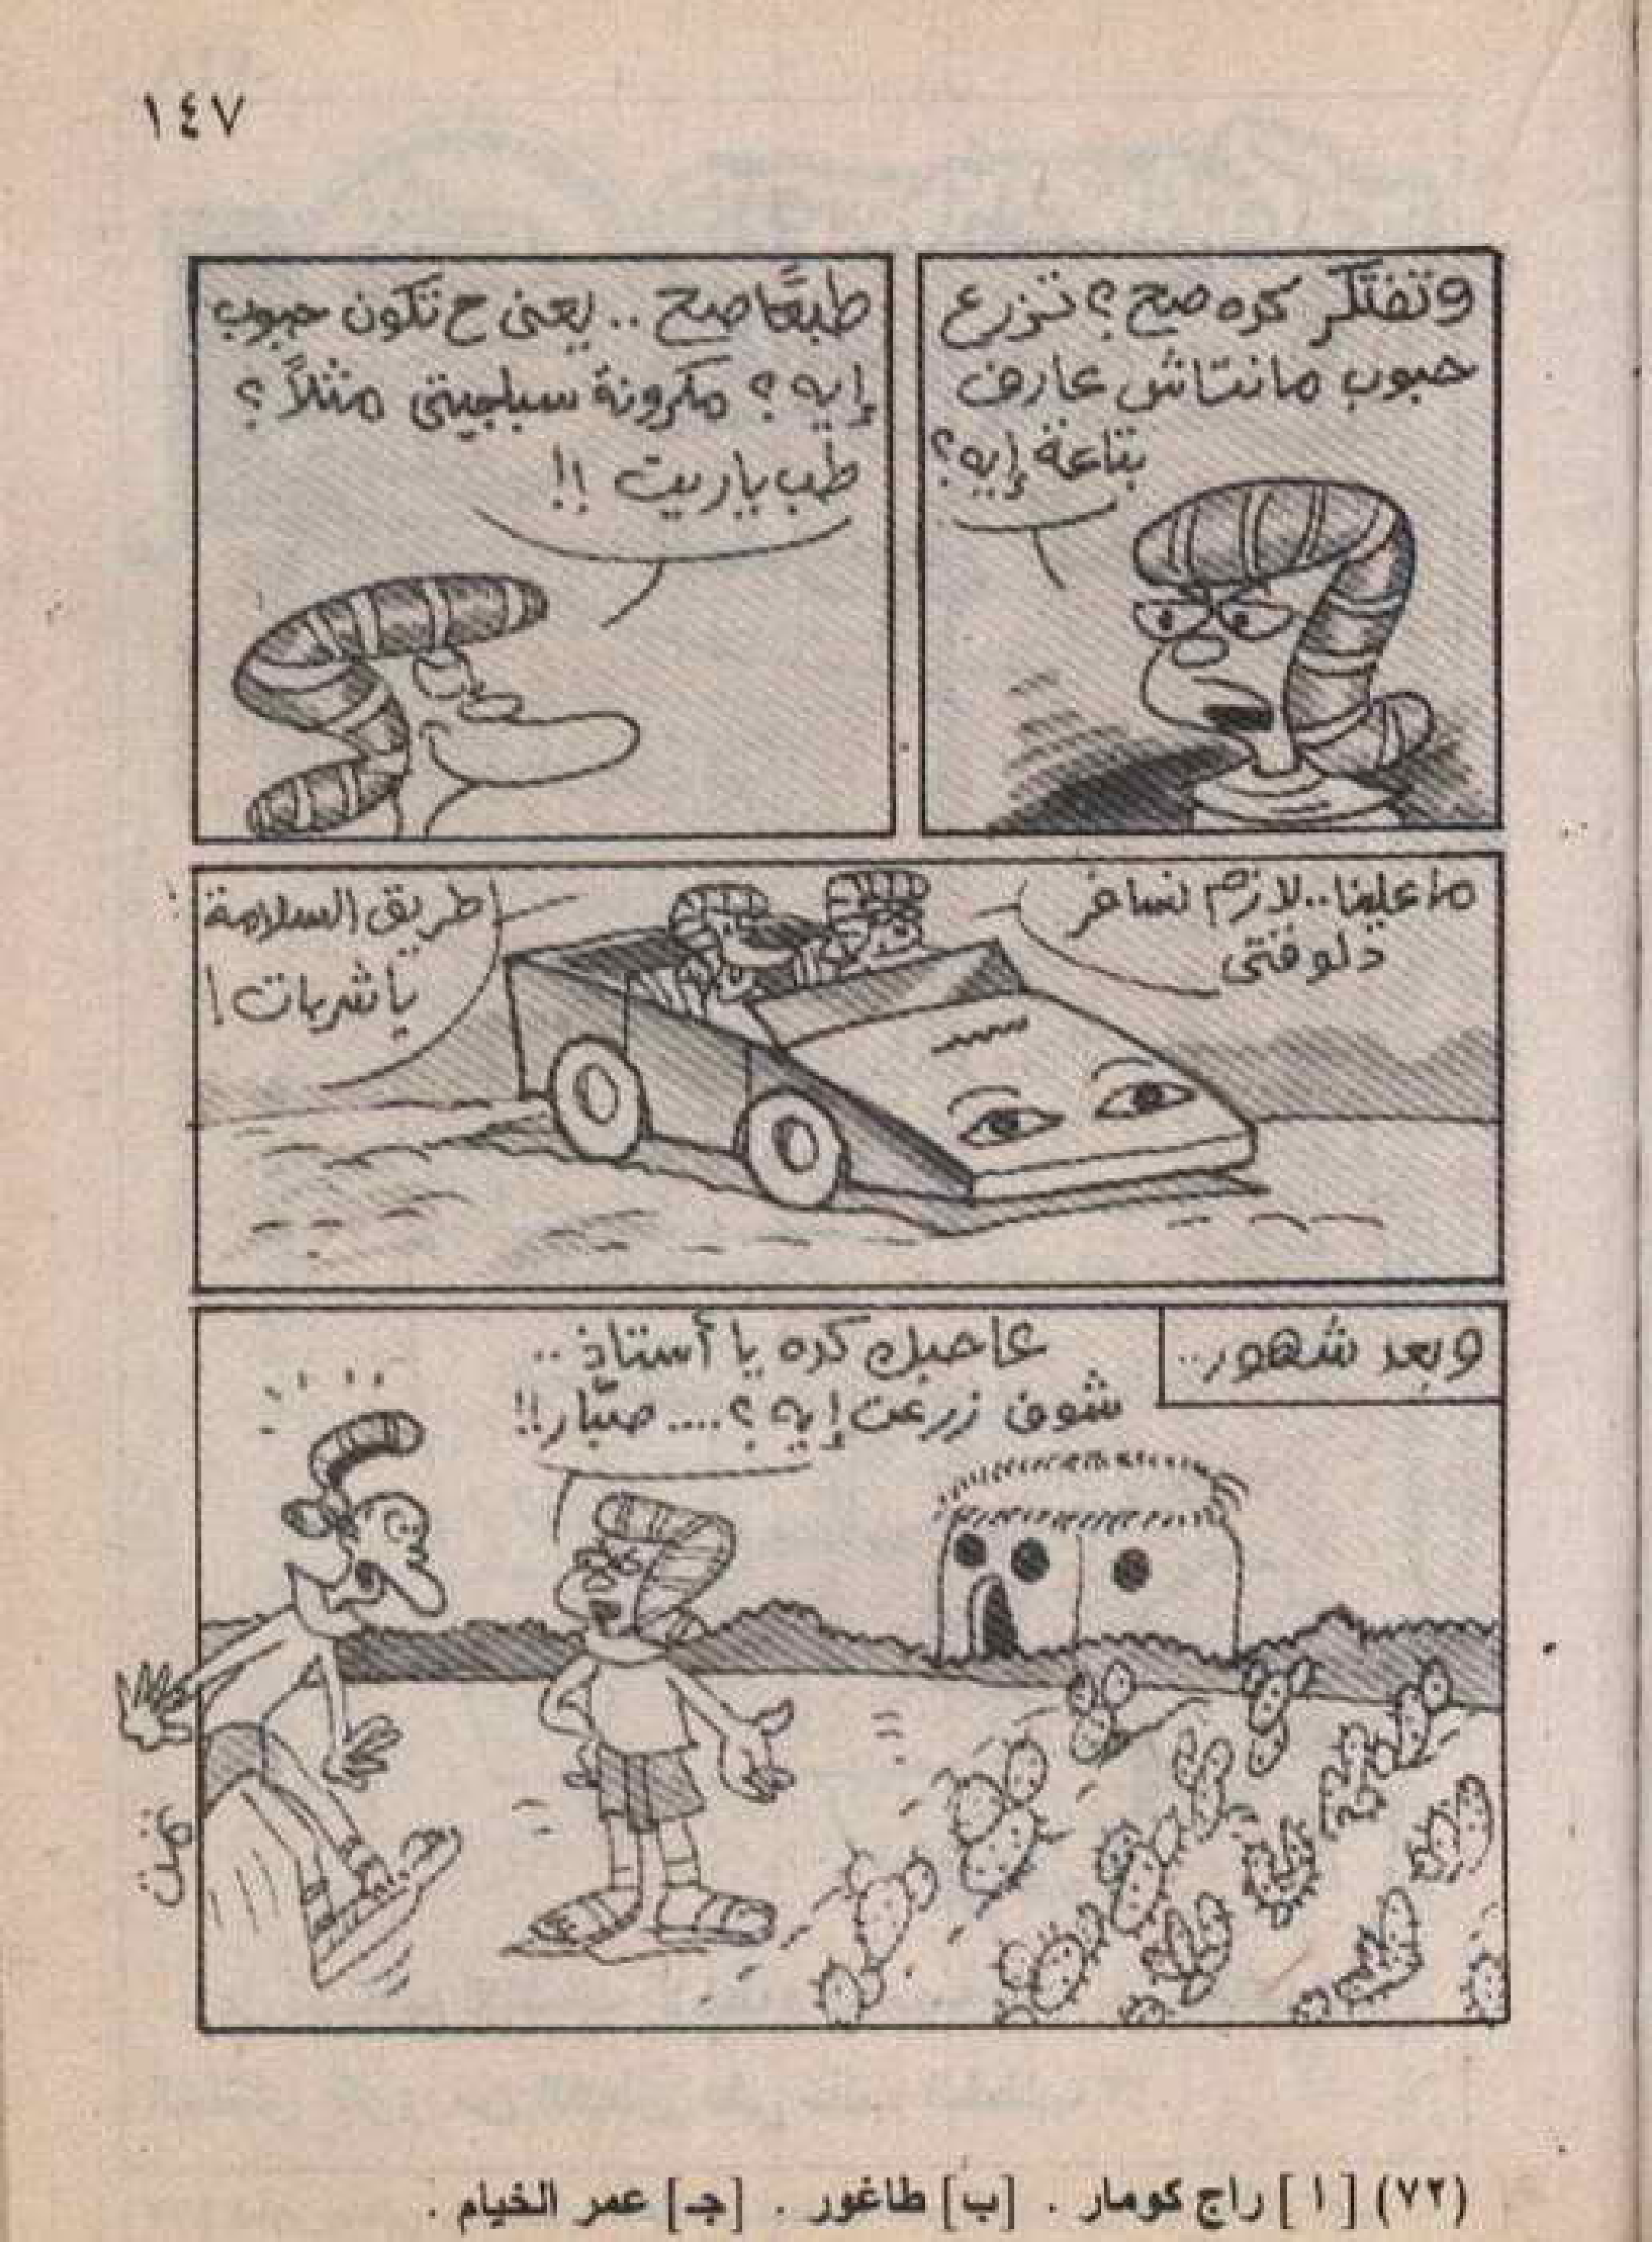 ١٤٧
وتفتكر كده صح؟ تزرع
حبوب مانتاش عارف
بتاعة إيه؟
طبعًا صح .. يعنى ح تكون حبوب
إيه؟ مكرونة سباجيتى مثلاً؟
طب ياريت !!
ما علينا.. لازم نسافر
دلوقتى
طريق السلامة
يا شربات!
وبعد شهور..
عاجبك كده يا أستاذ ..
شوف زرعت إيه؟.... صبّار!!
تمت
(٧٢) [ ا ] راج كومار . [ب] طاغور . [جـ] عمر الخيام .